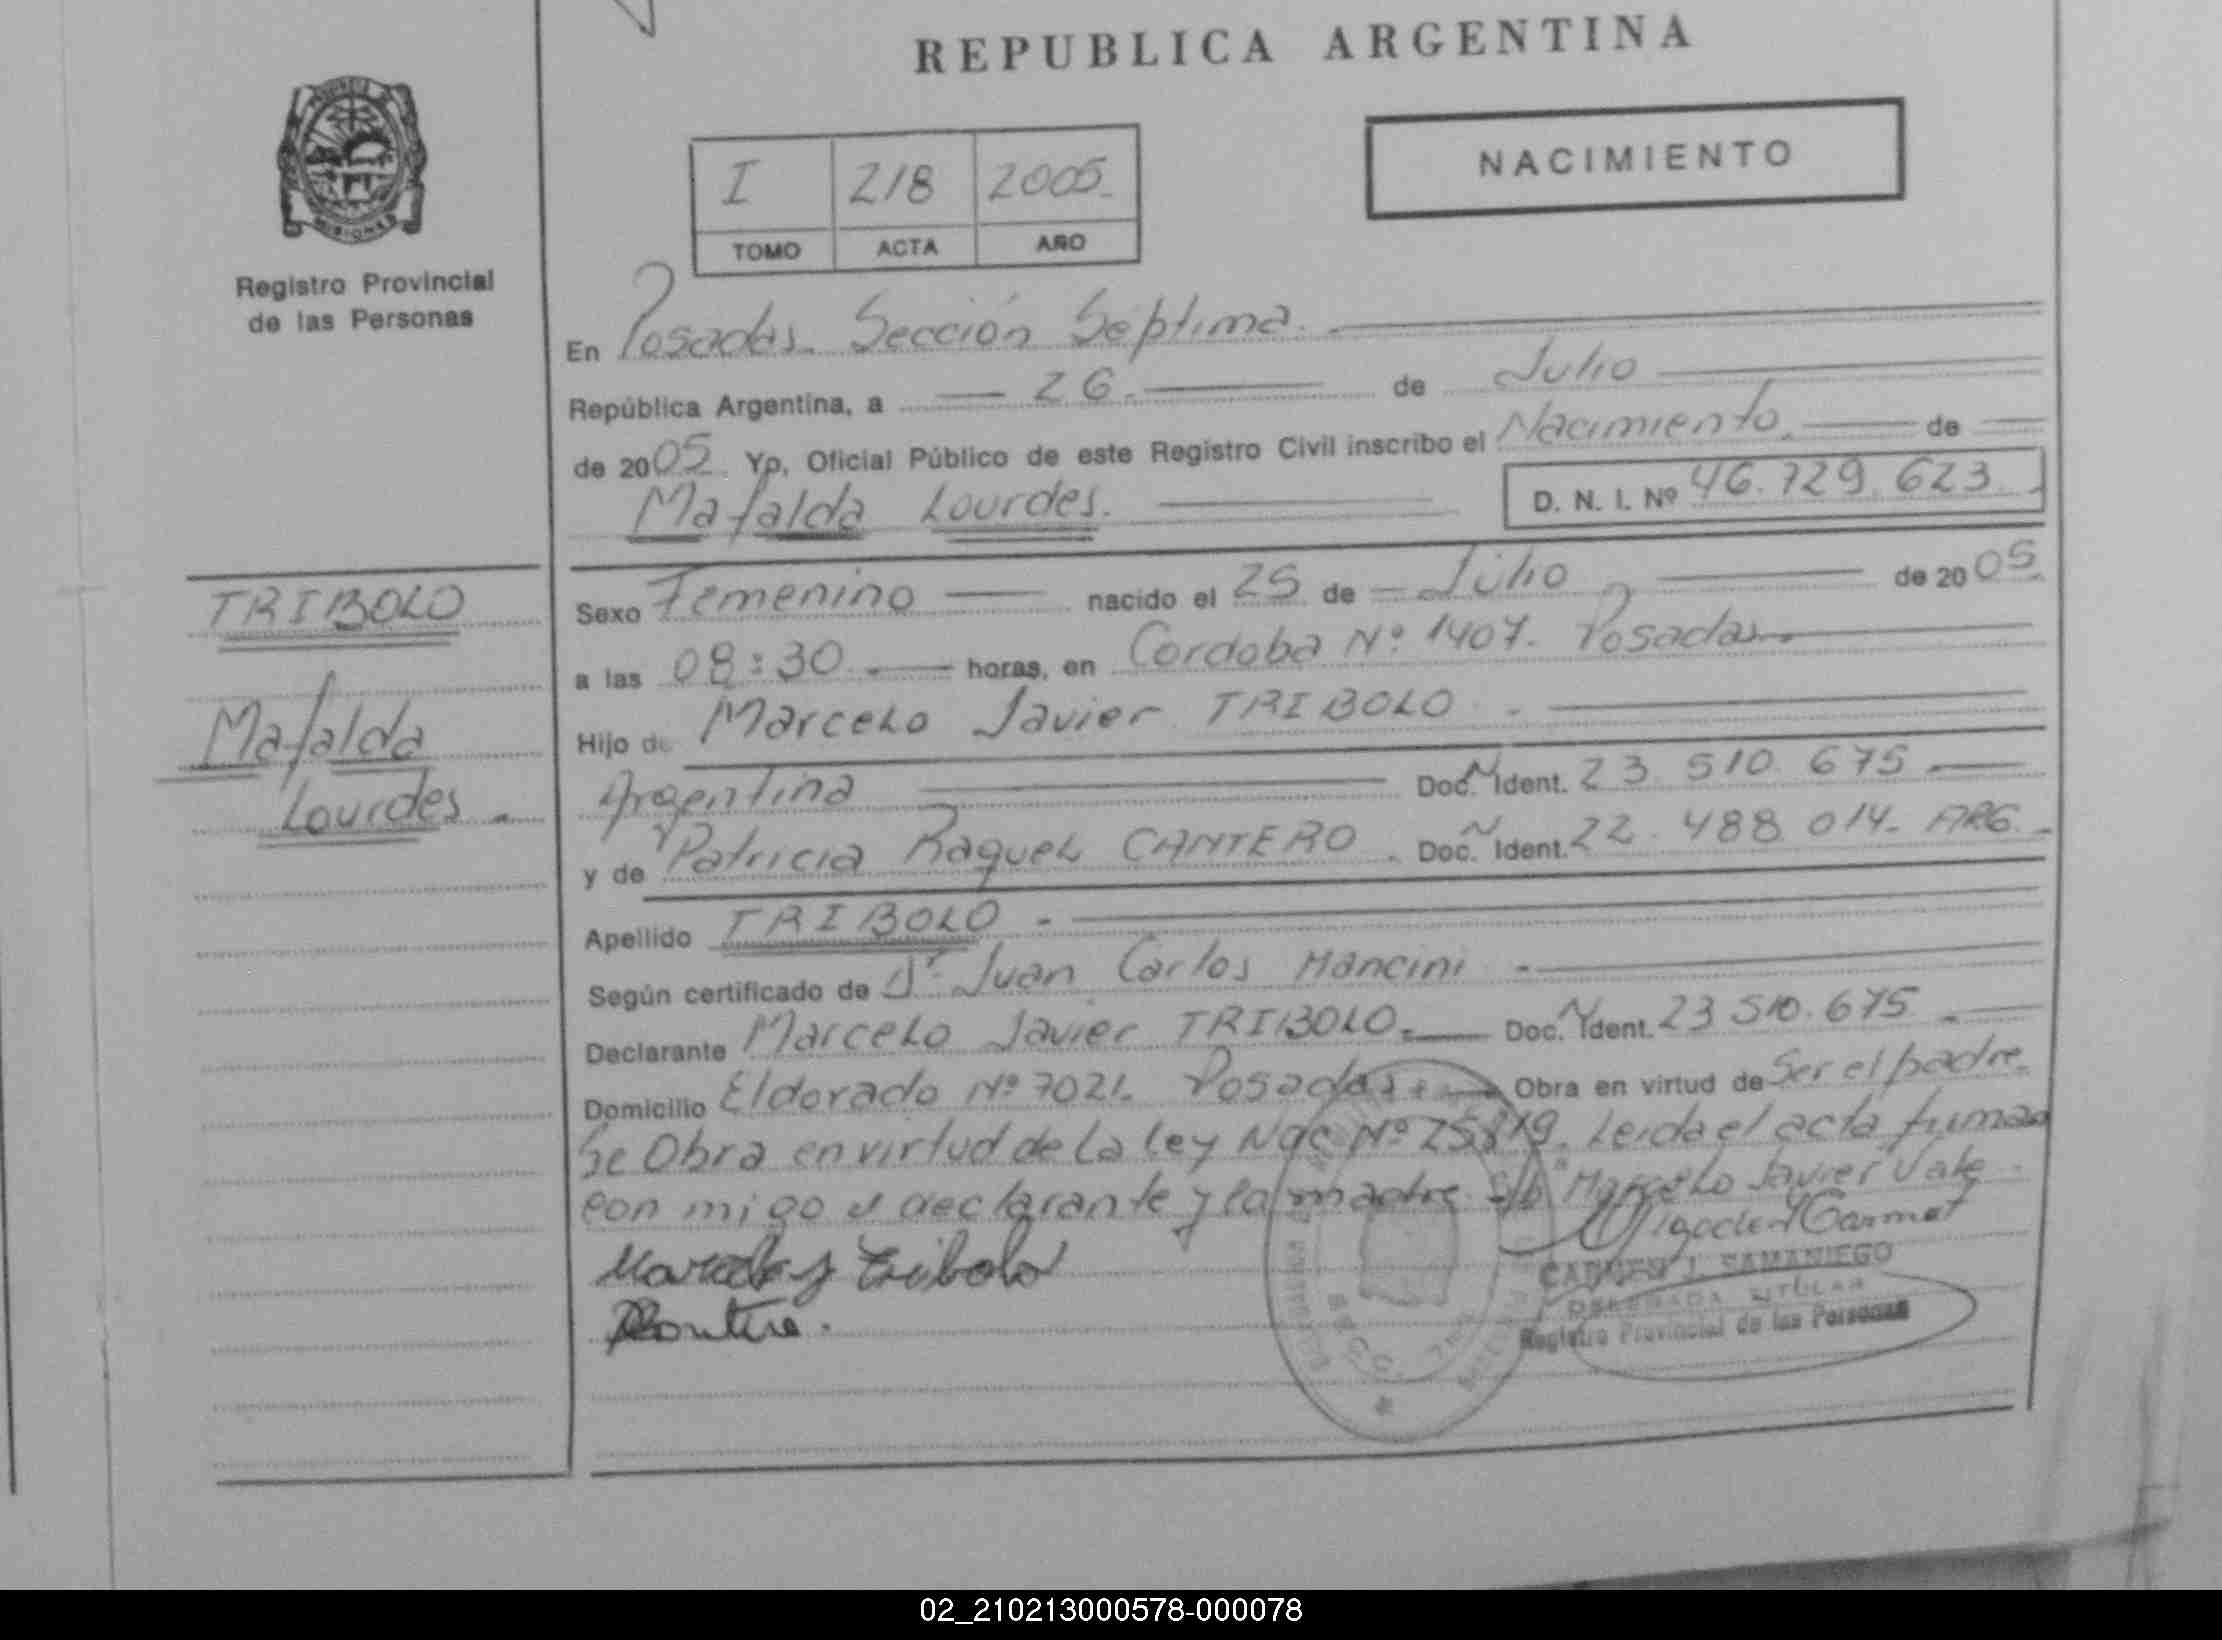 REPUBLICA ARGENTINA
NACIMIENTO
I 218 2005
TOMO ACTA AÑO
MISIONES
Registro Provincial
de las Personas
En Posadas. Sección Septima.
República Argentina, a 26. de Julio
de 2005 Yo, Oficial Público de este Registro Civil inscribo el Nacimiento. de
Mafalda Lourdes. D. N. I. Nº 46.729.623.
TRIBOLO
Mafalda
Lourdes.
Sexo Femenino nacido el 25 de Julio de 2005.
a las 08:30. horas, en Cordoba Nº 1407. Posadas.
Hijo de Marcelo Javier TRIBOLO.
Argentina Doc. N Ident. 23.510.675
y de Patricia Raquel CANTERO. Doc. N Ident. 22.488.014. ARG.
Apellido TRIBOLO.
Según certificado de Dr. Juan Carlos Mancini
Declarante Marcelo Javier TRIBOLO. Doc. N Ident. 23.510.675.
Domicilio Eldorado Nº 7021. Posadas. Obra en virtud de Ser el padre.
Se Obra en virtud de la Ley Nac Nº 25819. Leida el acta firman
con migo el declarante y la madre s/b "Marcelo Javier" Vale.
CARMEN I. SAMANIEGO
DELEGADA TITULAR
Registro Provincial de las Personas
02_210213000578-000078